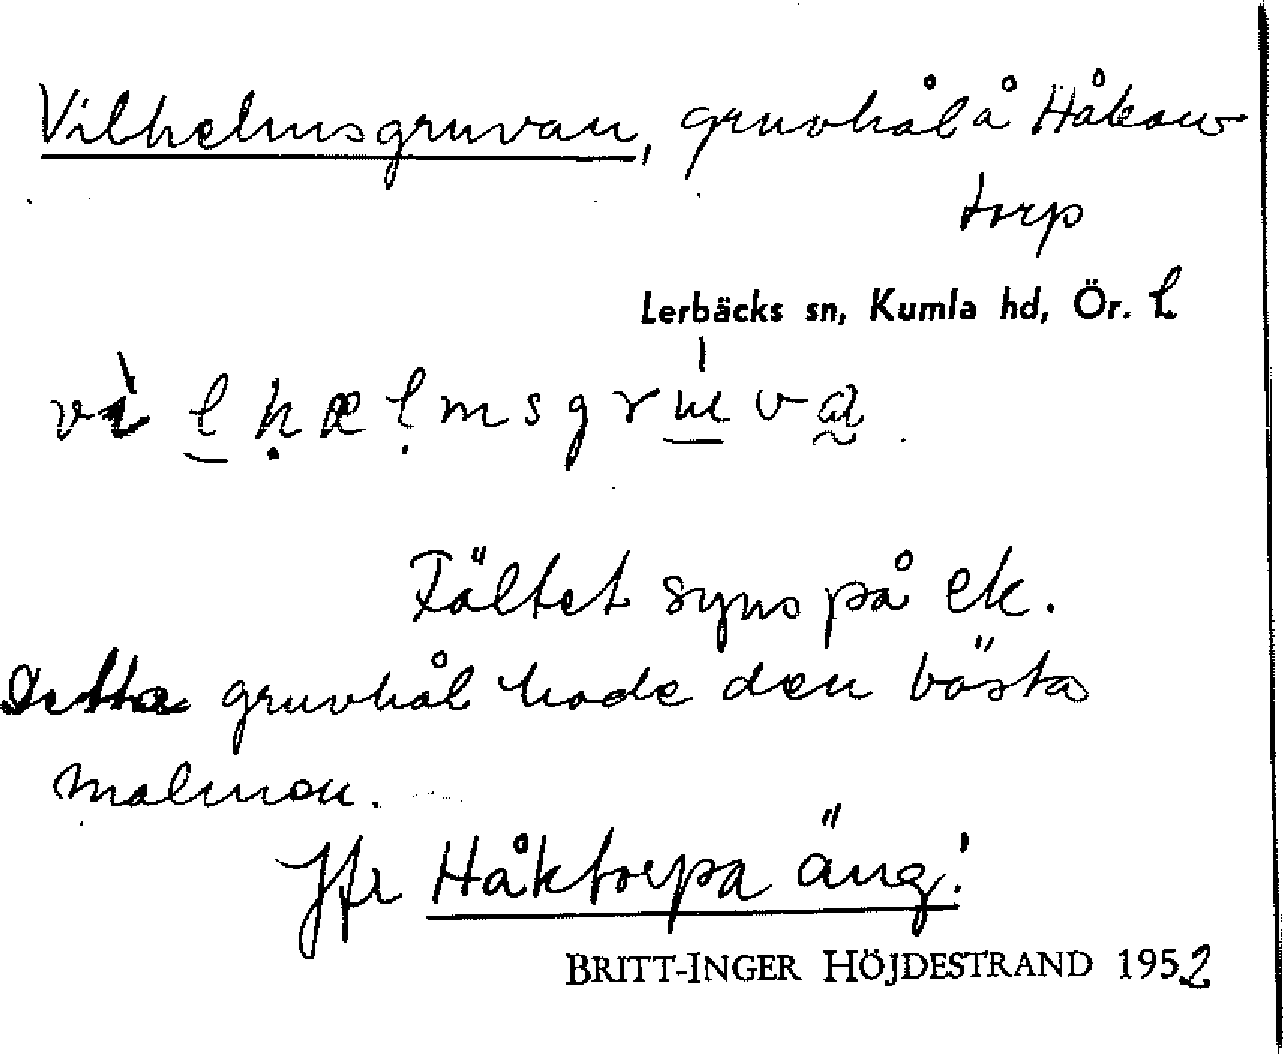 Vilhelmsgruvan, gruvhål å Håkans
torp
Lerbäcks sn, Kumla hd, Ör. L
Fältet syns på ek.
Detta gruvhål hade den bästa
malmen.
Jfr Håktorpa äng!
BRITT-INGER HÖJDESTRAND 1952